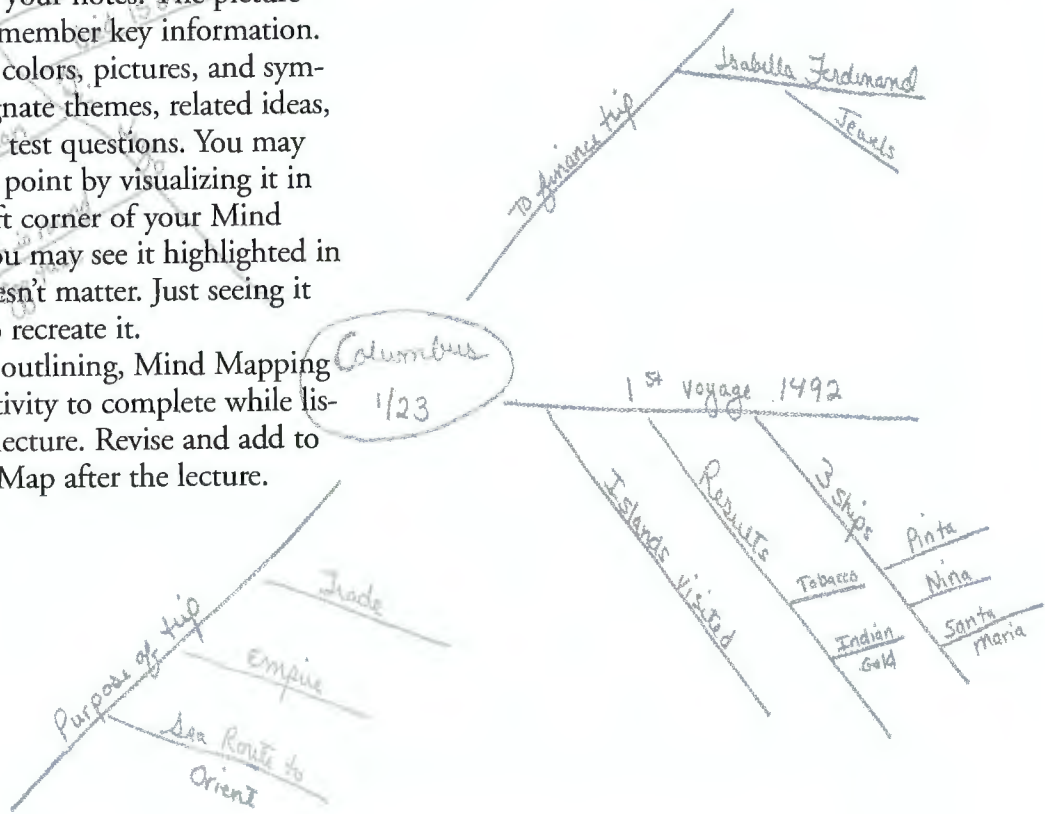 your notes. The picture
member key information.
colors, pictures, and sym-
gnate themes, related ideas,
test questions. You may
point by visualizing it in
ft corner of your Mind
ou may see it highlighted in
esn't matter. Just seeing it
recreate it.
outlining, Mind Mapping
tivity to complete while lis-
lecture. Revise and add to
Map after the lecture.
To finance trip
Isabella Ferdinand
Jewels
Columbus
1/23
1st voyage 1492
Islands visited
Results
Tobacco
Indian
Gold
3 ships
Pinta
Nina
Santa
Maria
Purpose of trip
Trade
Empire
Sea Route to
Orient